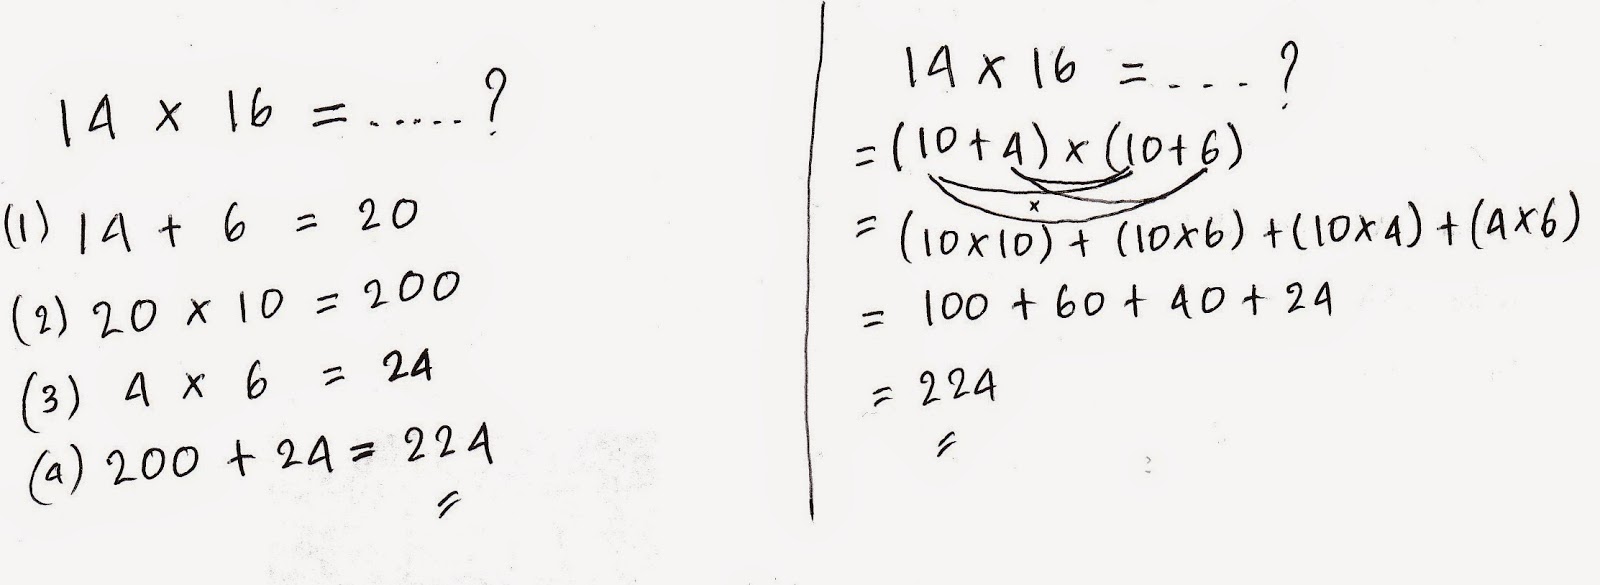 14 × 16 = ..... ?
(1) 14 + 6 = 20
(2) 20 × 10 = 200
(3) 4 × 6 = 24
(4) 200 + 24 = 224
14 × 16 = .... ?
= (10 + 4) × (10 + 6)
×
= (10×10) + (10×6) + (10×4) + (4×6)
= 100 + 60 + 40 + 24
= 224